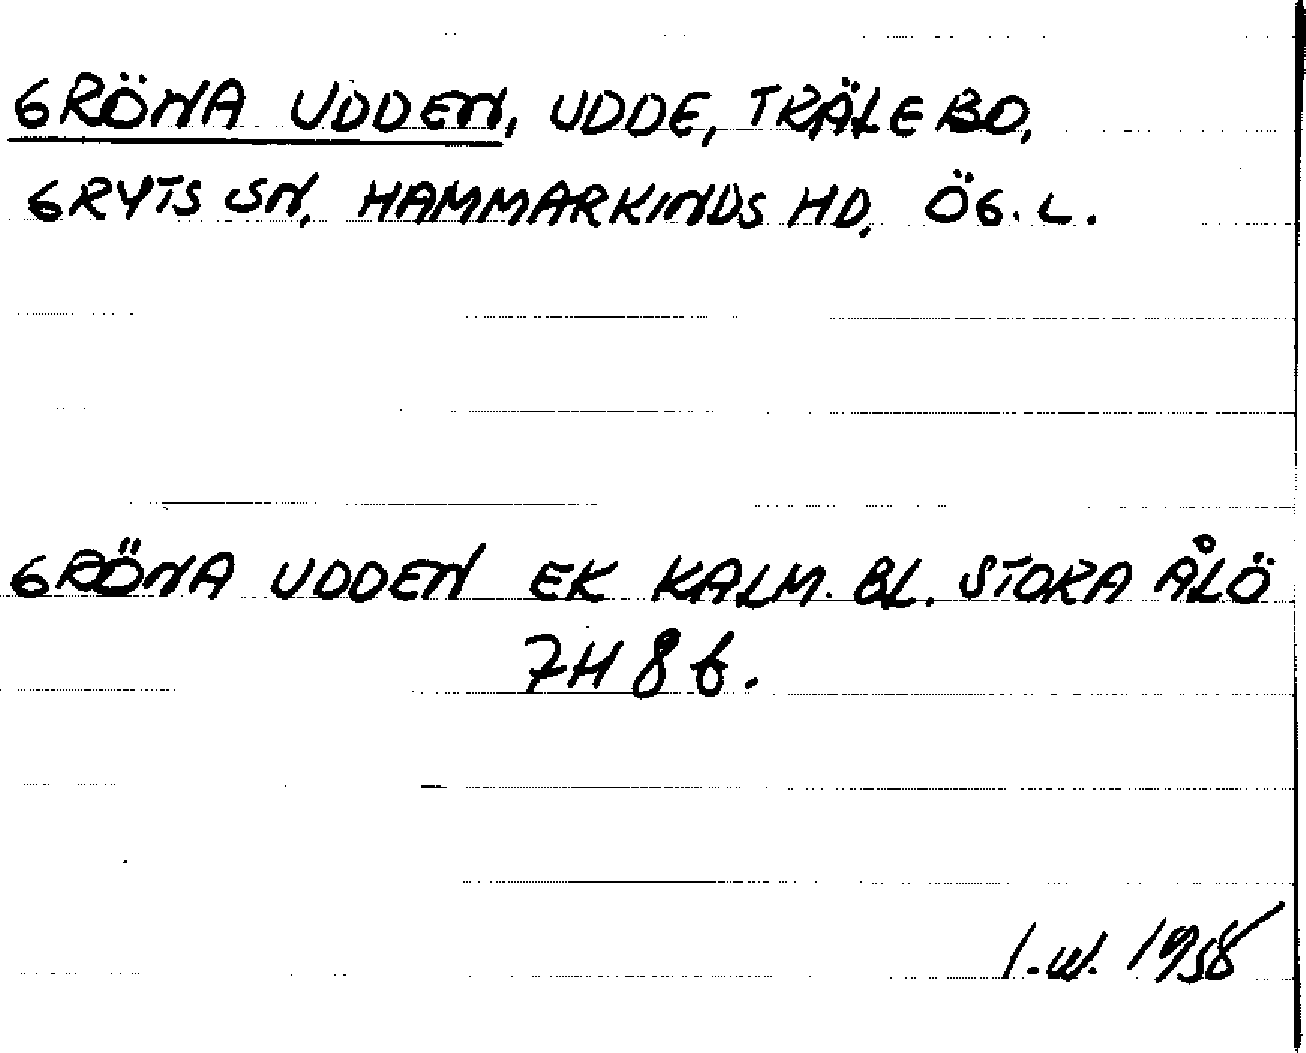 GRÖNA UDDEN, UDDE, TRÄLEBO,
GRYTS SN, HAMMARKINDS HD, ÖG. L.
GRÖNA UDDEN EK KALM. BL. STORA ÅLÖ
7H 8 b.
I.W. 1958